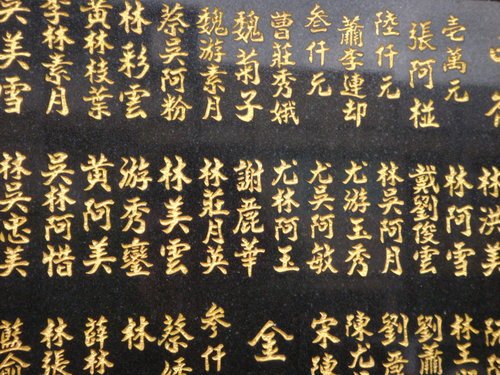 壹萬元
張阿椪
陸仟元
蕭李連却
叁仟元
曹莊秀娥
魏菊子
魏游素月
蔡吳阿粉
林彩雲
黃林枝葉
李林素月
吳美雪
林洪美
林阿雪
戴劉俊雲
林吳阿月
尤游玉秀
尤吳阿敏
尤林阿王
謝麗華
林莊月英
林美雲
游秀鑾
黃阿美
吳林阿惜
林吳忠美
林王
劉蕭
劉
陳尤
宋陳
金
叁仟
蔡
林
薛林
林張
藍俞